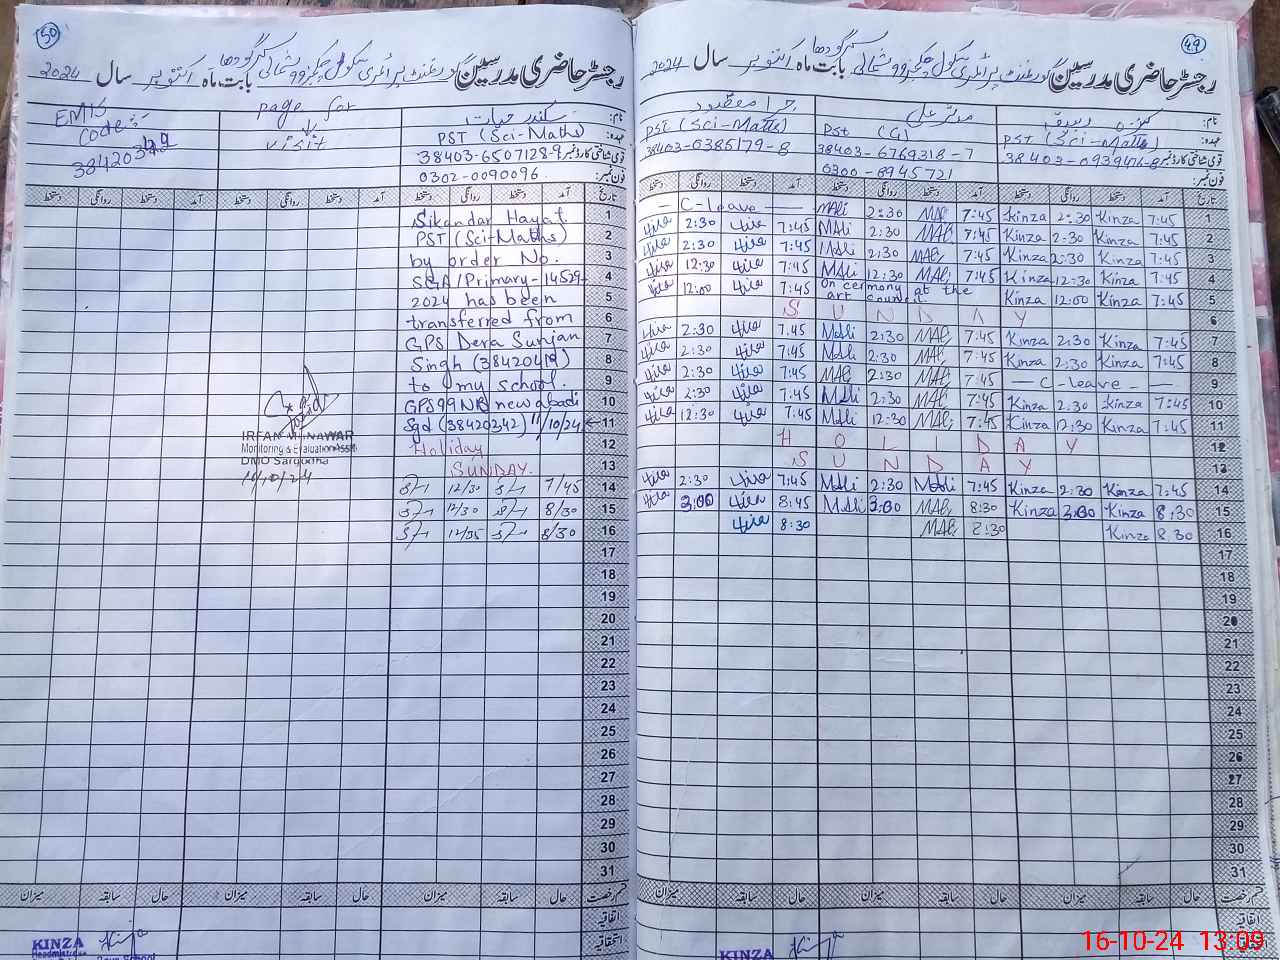 50
رجسٹر حاضری مدرسین گورنمنٹ پرائمری سکول چک نمبر 99 شمالی سرگودھا بابت ماہ اکتوبر سال 2024
EMIS Code:
page for visit
نام: سکندر حیات
عہدہ: PST (Sci-Maths)
قومی شناختی کارڈ نمبر 38403-6507128-9
فون نمبر: 0302-0090096
تاریخ آمد دستخط روانگی دستخط آمد دستخط روانگی دستخط آمد دستخط روانگی دستخط
Sikandar Hayat 1
PST (Sci-Maths) 2
by order No. 3
SGA/Primary-14529- 4
2024 has been 5
transferred from 6
GPS Dera Sunjan 7
Singh (38420419) 8
to my school. 9
GPS 99 NB new abadi 10
Sgd (38420342) 11/10/24 11
Holiday 12
SUNDAY. 13
12/30 7/45 14
12/30 8/30 15
12/35 8/30 16
17
18
19
20
21
22
23
24
25
26
27
28
29
30
31
IRFAN MUNAWAR
Monitoring & Evaluation Asstt
DMO Sargodha
10/10/24
قسم رخصت حال سابقہ میزان حال سابقہ میزان حال سابقہ میزان
اتفاقیہ
استحقاقیہ
KINZA
Headmistress
49
رجسٹر حاضری مدرسین گورنمنٹ پرائمری سکول چک نمبر 99 شمالی سرگودھا بابت ماہ اکتوبر سال 2024
نام: کنزہ مدثر علی حرا مقصود
عہدہ: PST (Sci-Maths) Pst (G) PST (Sci-Maths)
قومی شناختی کارڈ نمبر 38403-6769318-7 38403-0385179-8
فون نمبر: 0300-6945721
تاریخ آمد دستخط روانگی دستخط آمد دستخط روانگی دستخط آمد دستخط روانگی دستخط
— C-leave — MAli 2:30 MAli 7:45 Kinza 2:30 Kinza 7:45 1
2:30 7:45 MAli 2:30 MAli 7:45 Kinza 2:30 Kinza 7:45 2
2:30 7:45 MAli 2:30 MAli 7:45 Kinza 2:30 Kinza 7:45 3
12:30 7:45 MAli 12:30 MAli 7:45 Kinza 12:30 Kinza 7:45 4
12:00 7:45 On cermony at the art council. Kinza 12:00 Kinza 7:45 5
S U N D A Y 6
2:30 7:45 MAli 2:30 MAli 7:45 Kinza 2:30 Kinza 7:45 7
2:30 7:45 MAli 2:30 MAli 7:45 Kinza 2:30 Kinza 7:45 8
2:30 7:45 MAli 2:30 MAli 7:45 — C-leave — 9
2:30 7:45 MAli 2:30 MAli 7:45 Kinza 2:30 Kinza 7:45 10
12:30 7:45 MAli 12:30 MAli 7:45 Kinza 12:30 Kinza 7:45 11
H O L I D A Y 12
S U N D A Y 13
2:30 7:45 MAli 2:30 MAli 7:45 Kinza 2:30 Kinza 7:45 14
3:00 8:45 MAli 3:00 MAli 8:30 Kinza 3:00 Kinza 8:30 15
8:30 MAli 8:30 Kinza 8.30 16
17
18
19
20
21
22
23
24
25
26
27
28
29
30
31
قسم رخصت حال سابقہ میزان حال سابقہ میزان حال سابقہ میزان
اتفاقیہ
KINZA
16-10-24 13:09